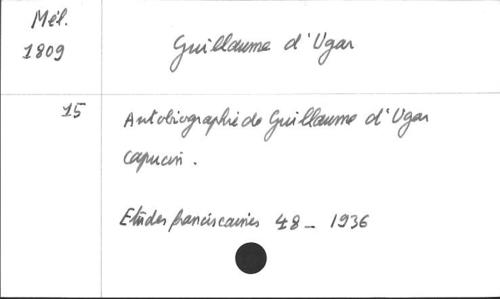 Mél.
1809
Guillaume d'Ugar
15
Autobiographie de Guillaume d'Ugar
capucin.
Etudes franciscaines 48 - 1936